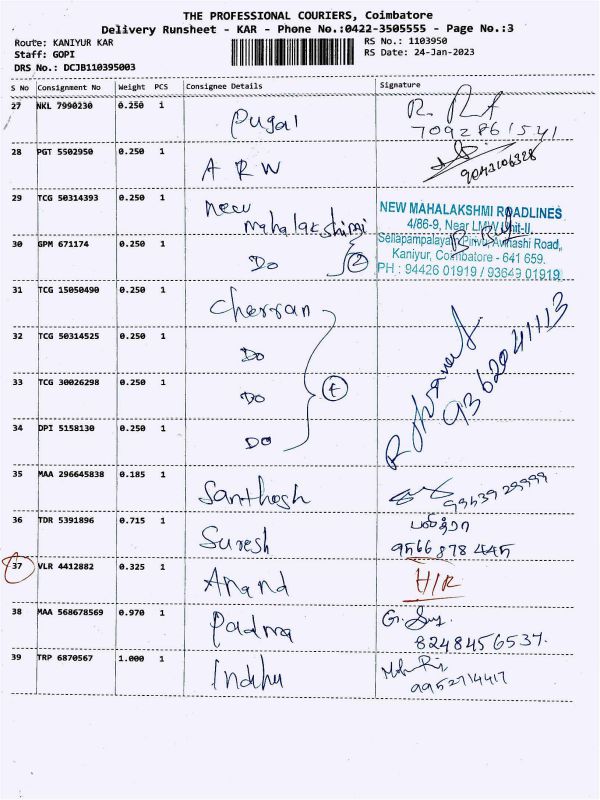 THE PROFESSIONAL COURIERS, Coimbatore
Delivery Runsheet - KAR - Phone No.:0422-3505555 - Page No.:3
Route: KANIYUR KAR
Staff: GOPI
DRS No.: DCJB110395003
RS No.: 1103950
RS Date: 24-Jan-2023
S No Consignment No Weight PCS Consignee Details Signature
27 NKL 7990230 0.250 1 Pugal
7092861541
28 PGT 5502950 0.250 1 A R W
9043106328
29 TCG 50314393 0.250 1 New
Mahalakshimi
NEW MAHALAKSHMI ROADLINES
4/86-9, Near LMW Unit-II.
Sellapampalayam Pirivu, Avinashi Road,
Kaniyur, Coimbatore - 641 659.
PH : 94426 01919 / 93649 01919
30 GPM 671174 0.250 1 Do 2
31 TCG 15050490 0.250 1 Cherran
32 TCG 50314525 0.250 1 Do
33 TCG 30026298 0.250 1 Do
34 DPI 5158130 0.250 1 Do
9362041113
35 MAA 296645838 0.185 1 Santhosh
36 TDR 5391896 0.715 1 Suresh
9566878445
37 VLR 4412882 0.325 1 Anand H/R
38 MAA 568678569 0.970 1 Padma
8248456537.
39 TRP 6870567 1.000 1 Indhu
9952714417